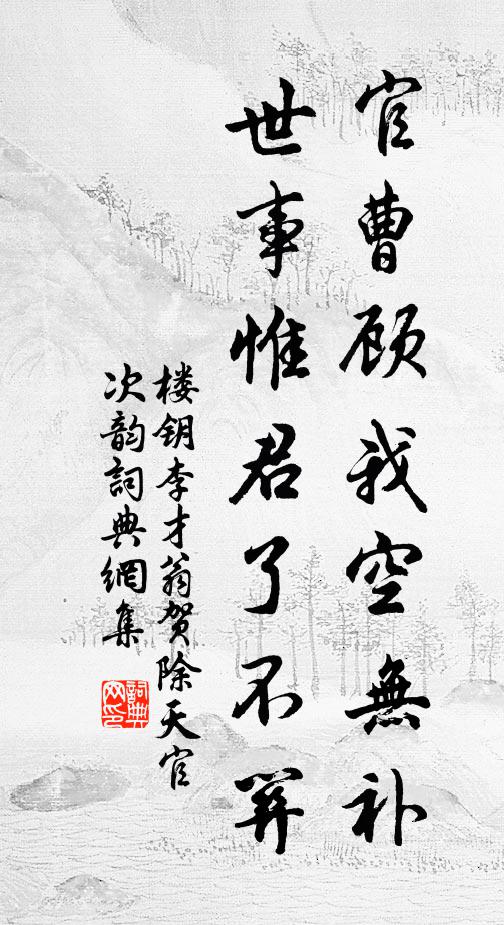 官曹顾我空無补
世事惟君了不關
楼钥李才翁贺除天官
次韵詞典網集
詞典
网印